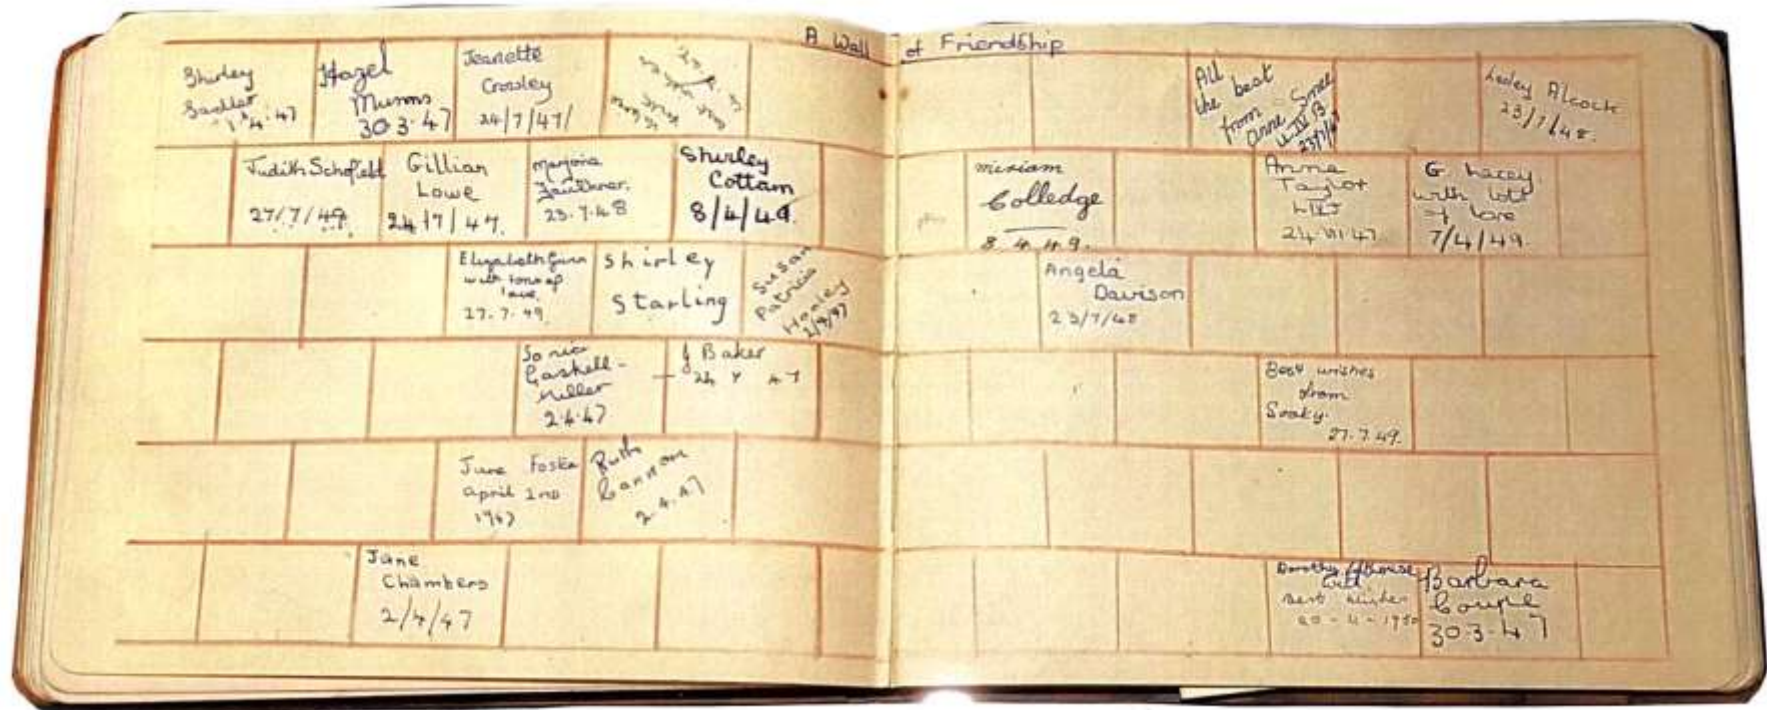 A Wall of Friendship
Shirley
1.4.47
Hazel
Munns
30.3.47
Jeanette
Crosley
24/7/47/
All
the best
from
Anne Smee
U IV B
23/7/47
Lesley Alcock
23/7/48.
Judith Schofield
27/7/49.
Gillian
Lowe
24/7/47.
Marjorie
Faulkner.
23.7.48
Shirley
Cottam
8/4/49.
Miriam
Colledge
8.4.49.
Anne
Taylor
24.VII.47.
G Lacey.
with lots
of love
7/4/49.
Elizabeth Gunn
with tons of
love.
27.7.49.
Shirley
Starling
Susan
Patricia
Healey
2/4/47
Angela
Davison
23/7/48
Sonia
Gaskell-
Miller
2.4.47
J Baker
24 7 47
Best wishes
from
27.7.49.
June Foste
April 2nd
1947
Ruth
Cannon
2.4.47
Jane
Chambers
2/4/47
Dorothy
with
Best Wishes
20-4-1950
Barbara
Couple
30.3.47